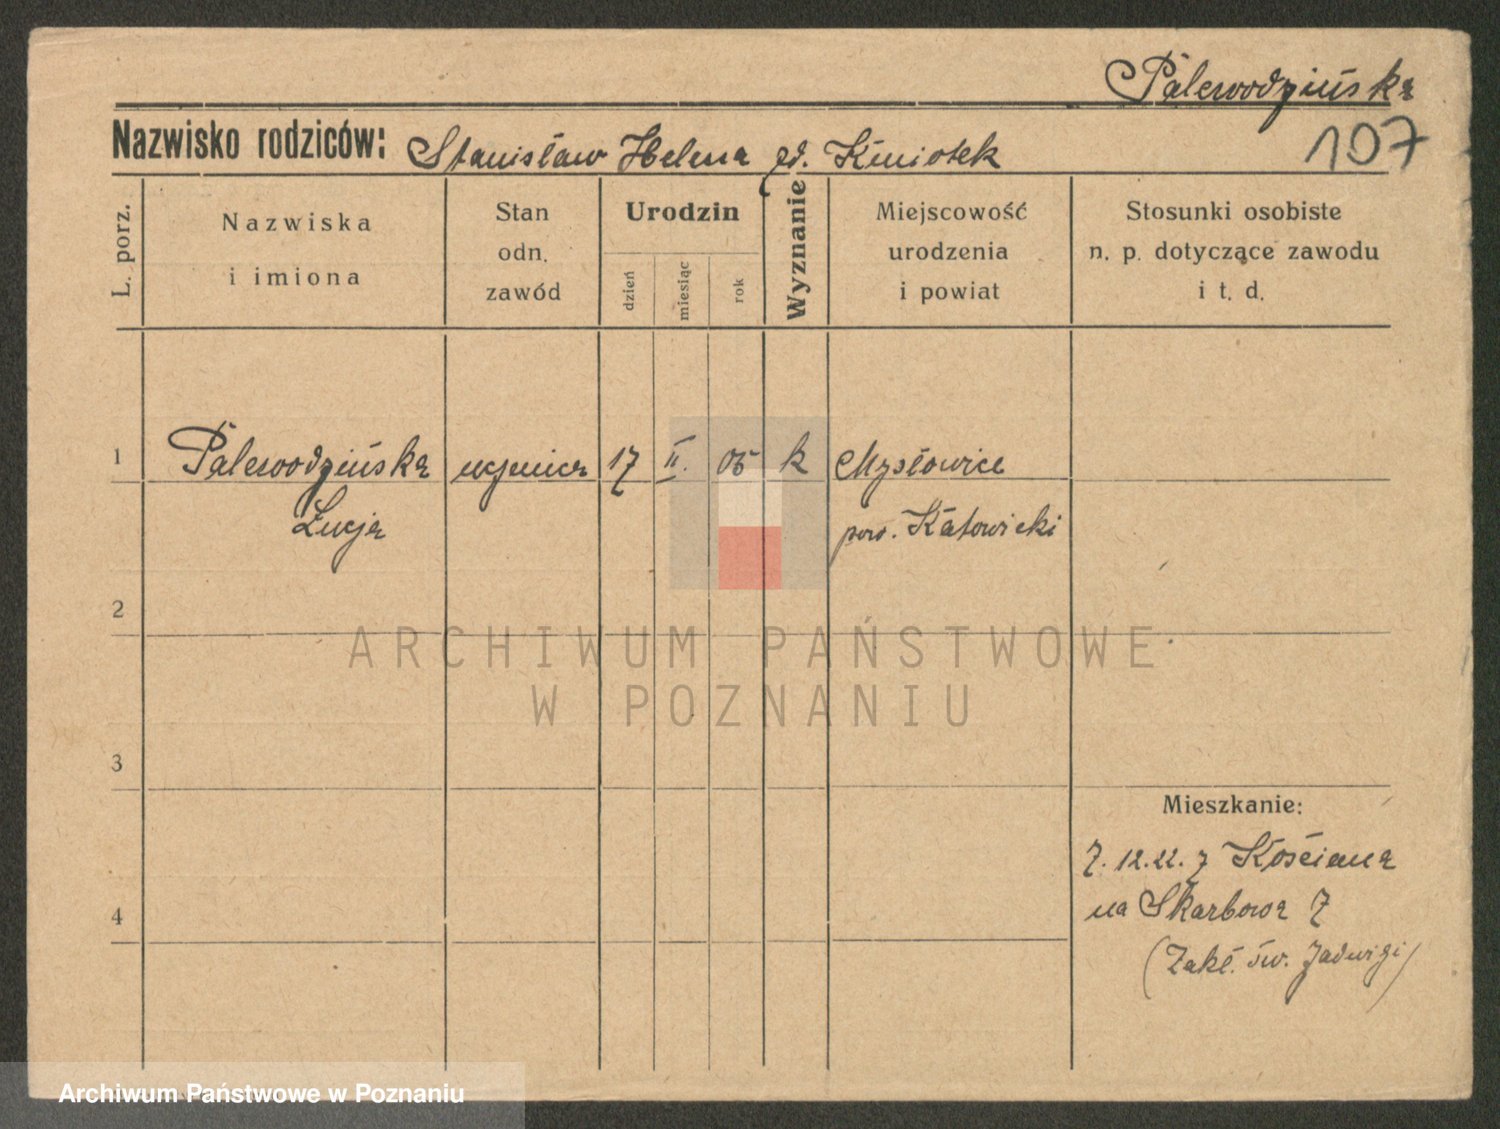 Palewodzińska
107
Nazwisko rodziców: Stanisław Helena zd. Kmiotek
L. porz.
Nazwiska
i imiona
Stan
odn.
zawód
Urodzin
dzień
miesiąc
rok
Wyznanie
Miejscowość
urodzenia
i powiat
Stosunki osobiste
n. p. dotyczące zawodu
i t. d.
1 Palewodzińska uczenica 17 II. 05 k Mysłowice
Łucja pow. Katowicki
2
ARCHIWUM PAŃSTWOWE
W POZNANIU
3
Mieszkanie:
7. 12. 22. z Kościana
4 na Skarbowa 7
(Zakł. św. Jadwigi)
Archiwum Państwowe w Poznaniu